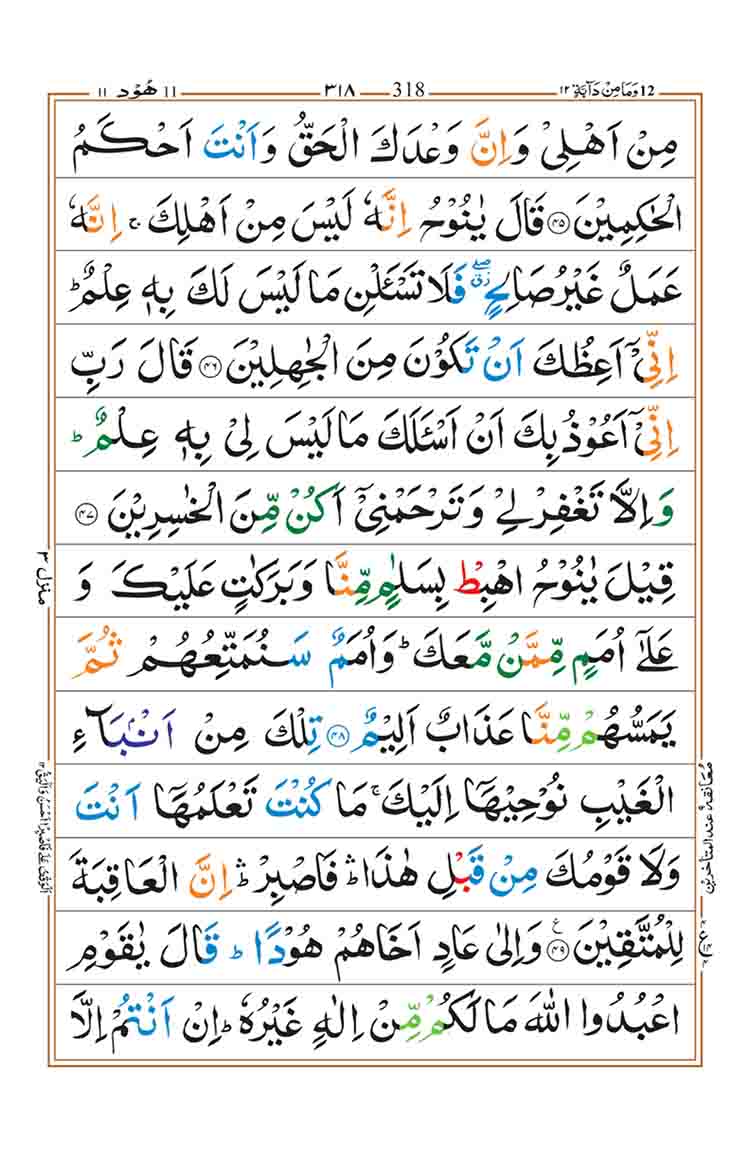 12 وَمَا مِنْ دَآبَّةٍ ١٢ 318 ٣١٨ 11 هُوْد ١١
مِنْ اَهْلِىْ وَاِنَّ وَعْدَكَ الْحَقُّ وَاَنْتَ اَحْكَمُ
الْحٰكِمِيْنَ ﴿۴۵﴾ قَالَ يٰنُوْحُ اِنَّهٗ لَيْسَ مِنْ اَهْلِكَ ۚ اِنَّهٗ
عَمَلٌ غَيْرُ صَالِحٍ ۖ فَلَا تَسْـَٔلْنِ مَا لَيْسَ لَكَ بِهٖ عِلْمٌ ؕ
اِنِّىْۤ اَعِظُكَ اَنْ تَكُوْنَ مِنَ الْجٰهِلِيْنَ ﴿۴۶﴾ قَالَ رَبِّ
اِنِّىْۤ اَعُوْذُ بِكَ اَنْ اَسْـَٔلَكَ مَا لَيْسَ لِىْ بِهٖ عِلْمٌ ؕ
وَاِلَّا تَغْفِرْ لِىْ وَتَرْحَمْنِىْۤ اَكُنْ مِّنَ الْخٰسِرِيْنَ ﴿۴۷﴾
قِيْلَ يٰنُوْحُ اهْبِطْ بِسَلٰمٍ مِّنَّا وَبَرَكٰتٍ عَلَيْكَ وَ
عَلٰٓى اُمَمٍ مِّمَّنْ مَّعَكَ ؕ وَاُمَمٌ سَنُمَتِّعُهُمْ ثُمَّ
يَمَسُّهُمْ مِّنَّا عَذَابٌ اَلِيْمٌ ﴿۴۸﴾ تِلْكَ مِنْ اَنْۢبَآءِ
الْغَيْبِ نُوْحِيْهَاۤ اِلَيْكَ ۚ مَا كُنْتَ تَعْلَمُهَاۤ اَنْتَ
وَلَا قَوْمُكَ مِنْ قَبْلِ هٰذَا ۛؕ فَاصْبِرْ ۛؕ اِنَّ الْعَاقِبَةَ
لِلْمُتَّقِيْنَ ﴿۴۹﴾ وَاِلٰى عَادٍ اَخَاهُمْ هُوْدًا ؕ قَالَ يٰقَوْمِ
اعْبُدُوا اللّٰهَ مَا لَكُمْ مِّنْ اِلٰهٍ غَيْرُهٗ ؕ اِنْ اَنْتُمْ اِلَّا
منزل ٣
معانقة عند المتأخرين